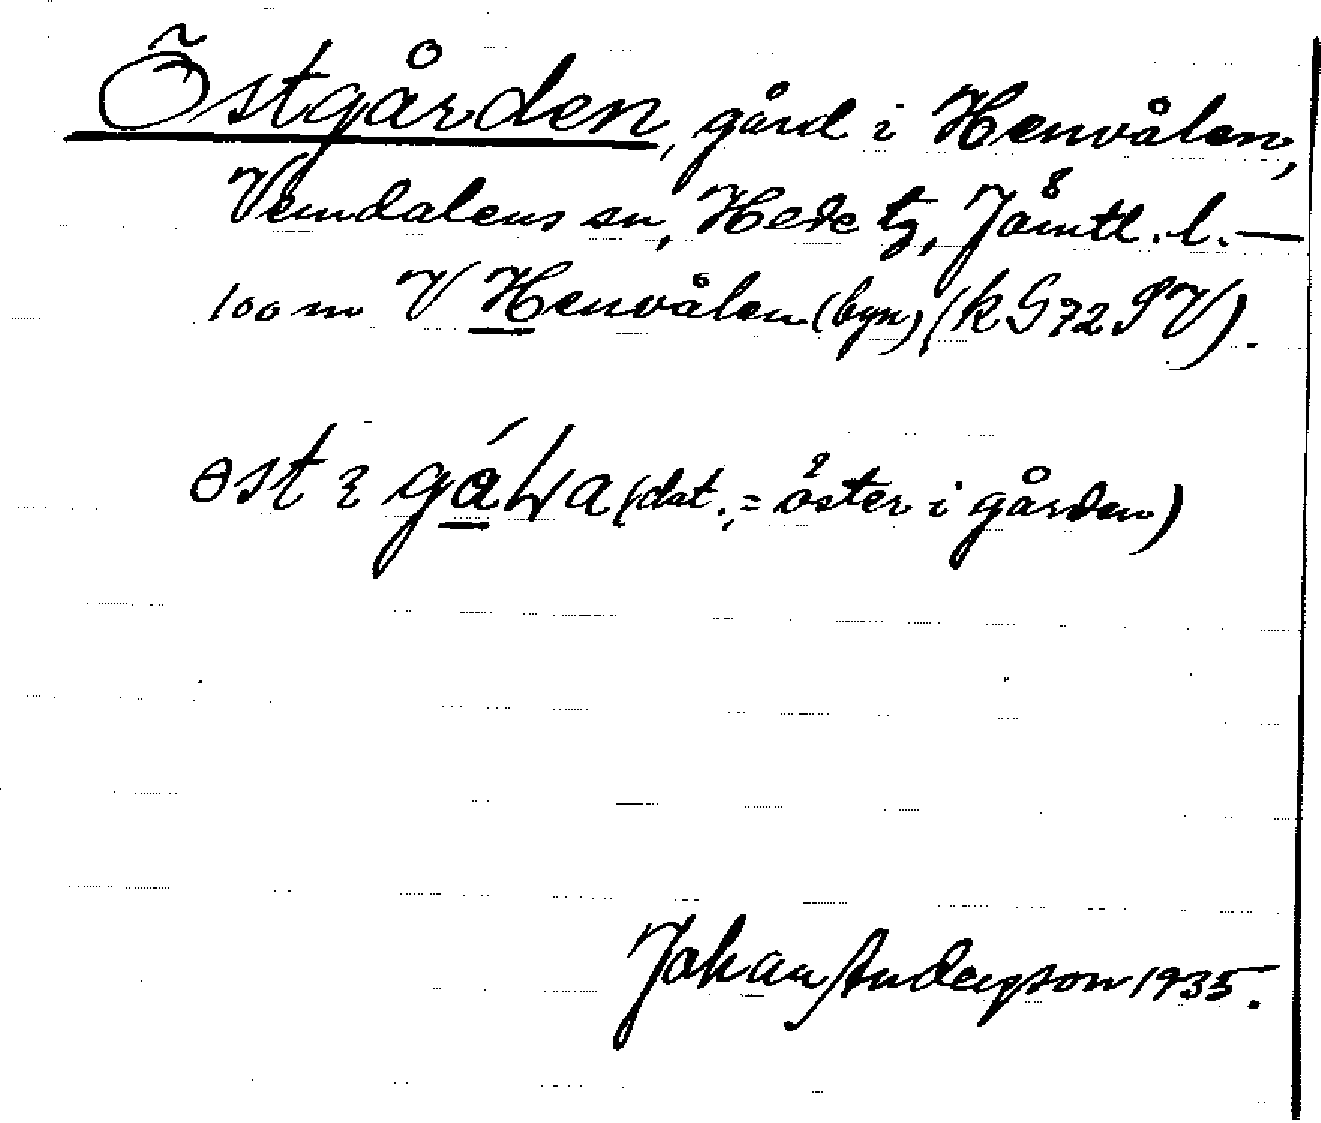 Östgården, gård i Henvålen,
Vemdalens sn, Hede tg, Jämtl. l. —
100 m V Henvålen (byn) (k G72SV).
(dat., = öster i gården)
Johan Anderson 1935.